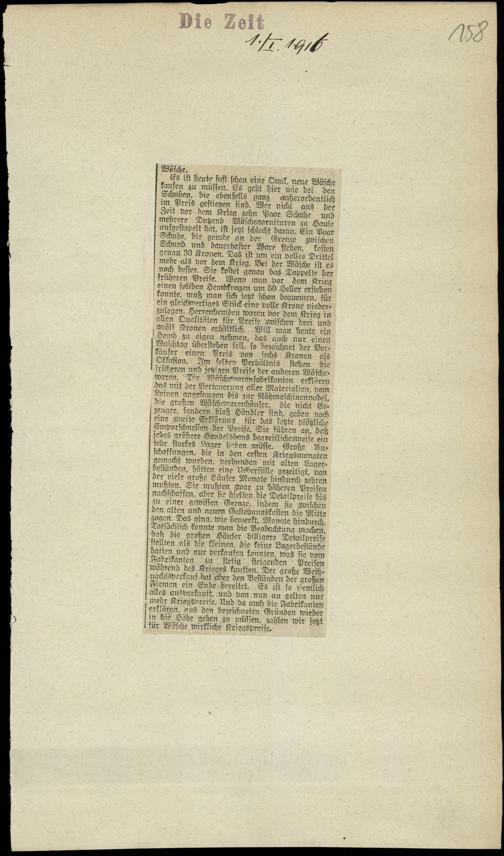 Die Zeit
1./I. 1916
158
Wäsche.
Es ist heute fast schon eine Qual, neue Wäsche
kaufen zu müssen. Es geht hier wie bei den
Schuhen, die ebenfalls ganz außerordentlich
im Preis gestiegen sind. Wer nicht aus der
Zeit vor dem Krieg zehn Paar Schuhe und
mehrere Dutzend Wäschegarnituren zu Hause
aufgestapelt hat, ist jetzt schlecht daran. Ein Paar
Schuhe, die gerade an der Grenze zwischen
Schund und dauerhafter Ware stehen, kosten
genau 30 Kronen. Das ist um ein volles Drittel
mehr als vor dem Krieg. Bei der Wäsche ist es
noch besser. Sie kostet genau das Doppelte der
früheren Preise. Wenn man vor dem Krieg
einen soliden Hemdkragen um 50 Heller erstehen
konnte, muß man sich jetzt schon bequemen, für
ein gleichwertiges Stück eine volle Krone nieder-
zulegen. Herrenhemden waren vor dem Krieg in
allen Qualitäten für Preise zwischen drei und
zwölf Kronen erhältlich. Will man heute ein
Hemd zu eigen nehmen, das auch nur einen
Waschtag überstehen soll, so bezeichnet der Ver-
käufer einen Preis von sechs Kronen als
Okkasion. Im selben Verhältnis stehen die
früheren und jetzigen Preise der anderen Wäsche-
waren. Die Wäschewarenfabrikanten erklären
das mit der Verteuerung aller Materialien, vom
Leinen angefangen bis zur Nähmaschinennadel,
die großen Wäschewarenhäuser, die nicht Er-
zeuger, sondern bloß Händler sind, geben noch
eine zweite Erklärung für das letzte plötzliche
Emporschnellen der Preise. Sie führen an, daß
jedes größere Handelshaus begreiflicherweise ein
sehr starkes Lager haben müsse. Große An-
schaffungen, die in den ersten Kriegsmonaten
gemacht wurden, verbunden mit alten Lager-
beständen, hätten eine Ueberfülle gezeitigt, von
der viele große Häuser Monate hindurch zehren
mußten. Sie mußten zwar zu höheren Preisen
nachschaffen, aber sie hielten die Detailpreise bis
zu einer gewissen Grenze, indem sie zwischen
den alten und neuen Gestehungskosten die Mitte
zogen. Das ging, wie bemerkt, Monate hindurch.
Tatsächlich konnte man die Beobachtung machen,
daß die großen Häuser billigere Detailpreise
stellten als die kleinen, die keine Lagerbestände
hatten und nur verkaufen konnten, was sie vom
Fabrikanten zu stetig steigenden Preisen
während des Krieges kauften. Der große Weih-
nachtsverkauf hat aber den Beständen der großen
Firmen ein Ende bereitet. Es ist so ziemlich
alles ausverkauft, und von nun an gelten nur
mehr Kriegspreise. Und da auch die Fabrikanten
erklären, aus den bezeichneten Gründen wieder
in die Höhe gehen zu müssen, zahlen wir jetzt
für Wäsche wirkliche Kriegspreise.